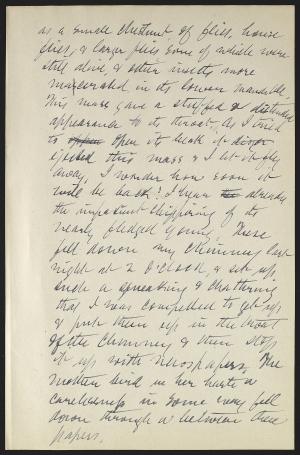 as a small chestnut of flies, house
flies, & larger flies some of which were
still alive, & other insects more
macerated in its lower mandible.
This mass gave a stuffed & distended
appearance to its throat. As I tried
to open its beak it
ejected this mass & I let it fly
away. I wonder how soon it
will be back? I hear already
the impatient chippering of its
nearly fledged young. These
fell down my chimney last
night at 2 o'clock, & set up
such a squeaking & chattering
that I was compelled to get up
& put them up in the throat
of the chimney & then stop
it up with newspapers. The
mother bird in her haste or
carelessness in some way fell
down through or between these
papers.